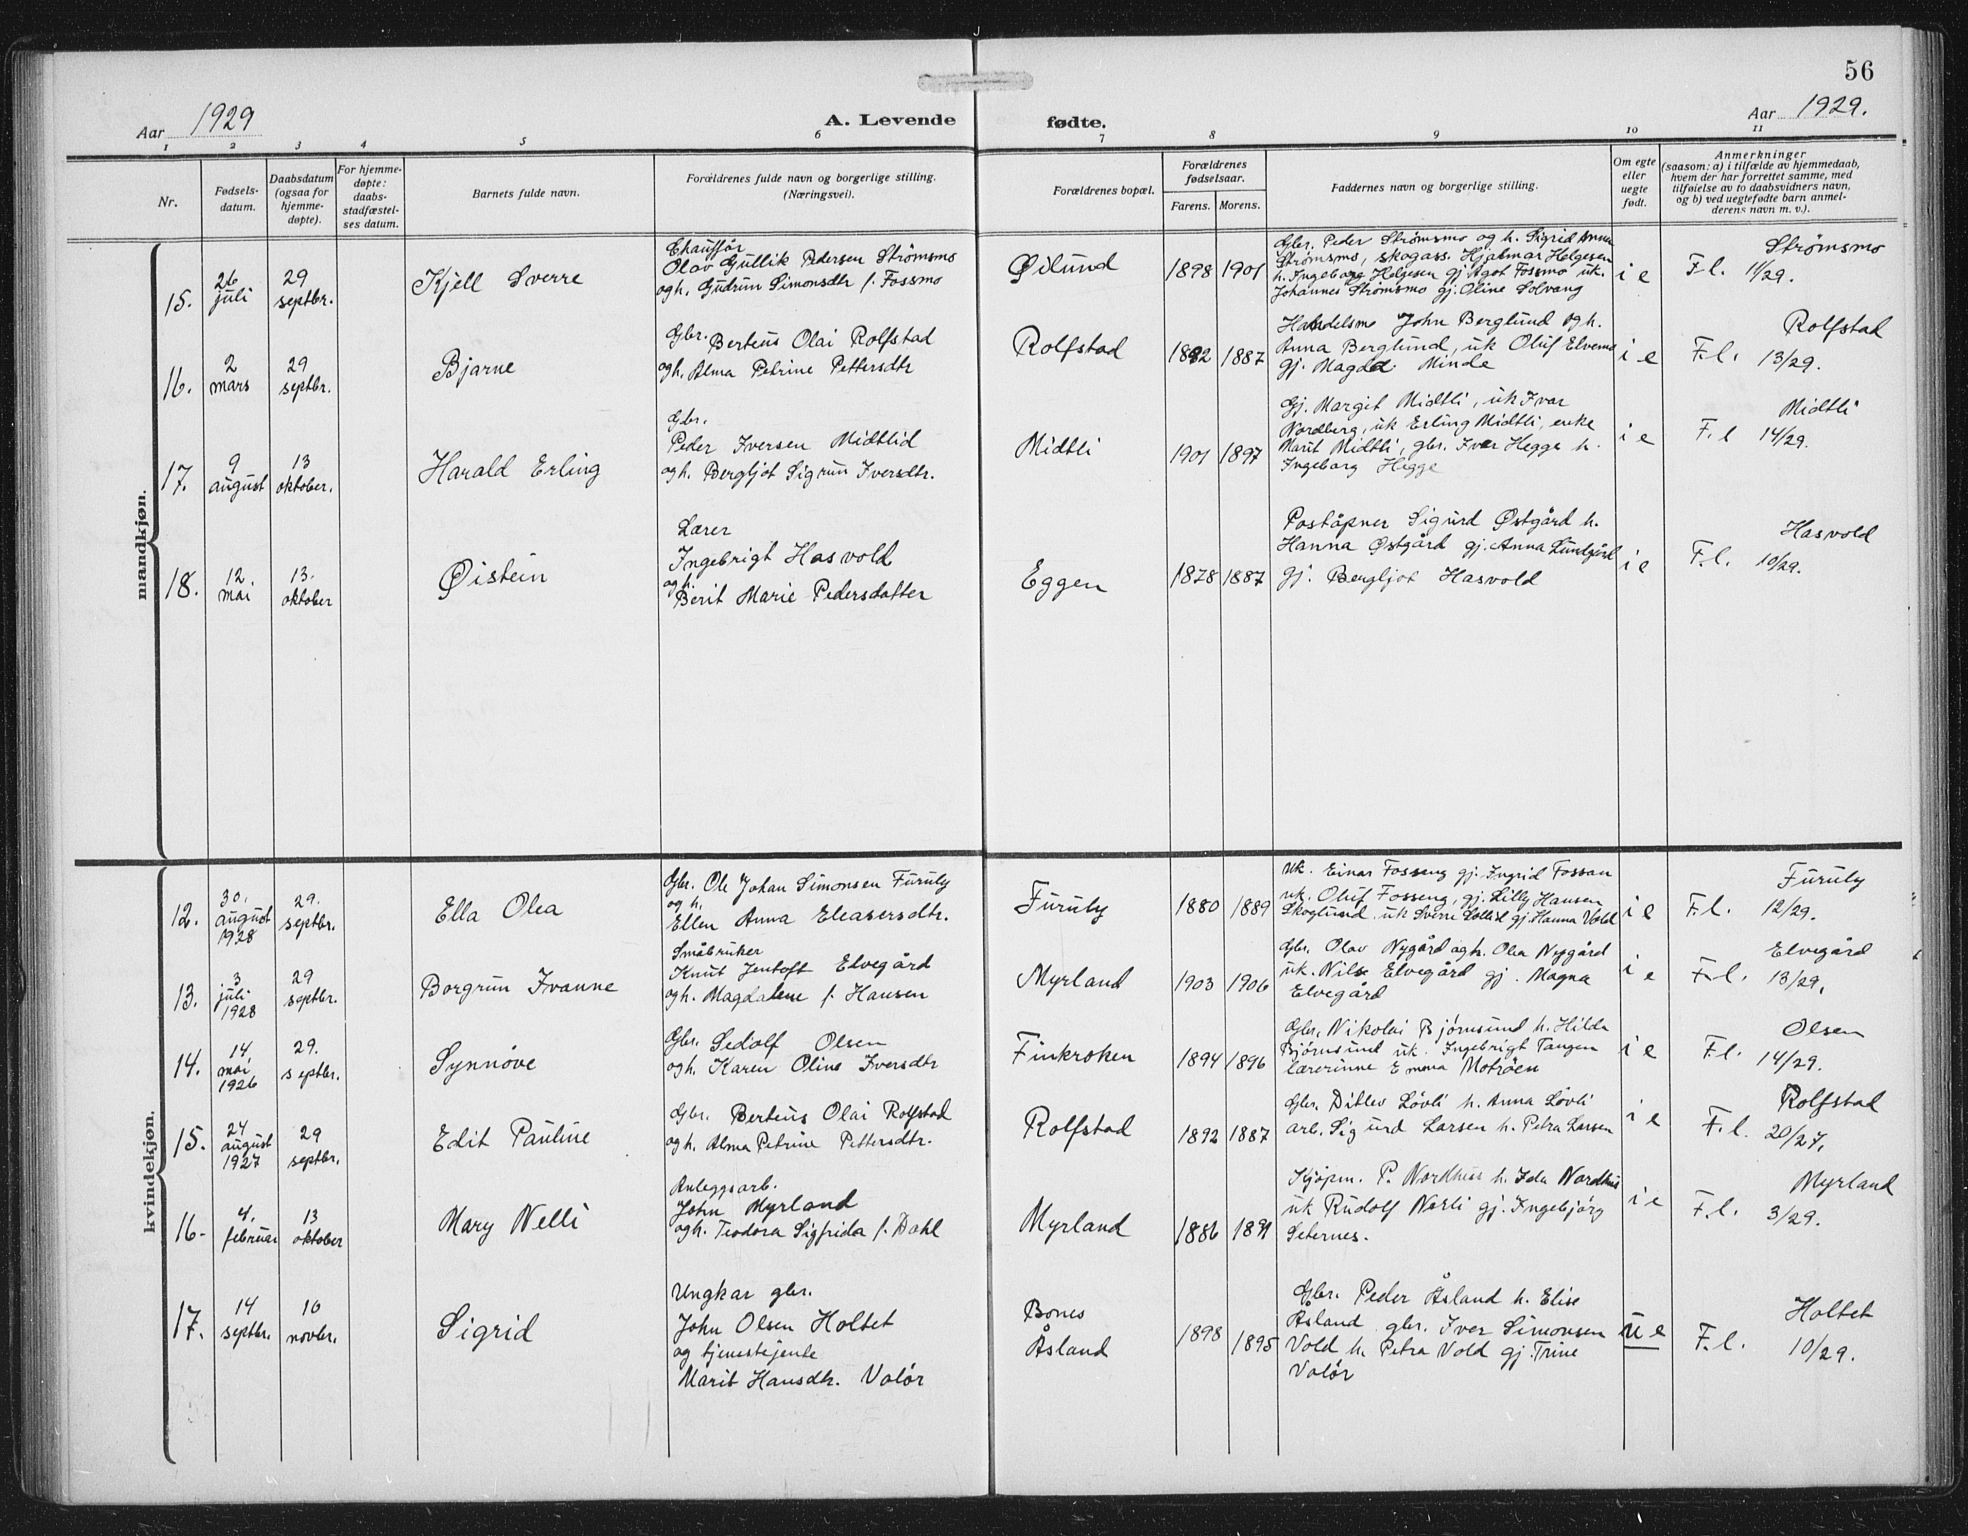 56
Aar 1929
A. Levende fødte.
Aar 1929.
1 2 3 4 5 6 7 8 9 10 11
Nr.
Fødsels-
datum.
Daabsdatum
(ogsaa for
hjemme-
døpte).
For hjemme-
døpte:
daabs-
stadfæstel-
ses datum.
Barnets fulde navn.
Forældrenes fulde navn og borgerlige stilling.
(Næringsvei).
Forældrenes bopæl.
Forældrenes
fødselsaar.
Farens. Morens.
Faddernes navn og borgerlige stilling.
Om egte
eller
uegte
født.
Anmerkninger
(saasom: a) i tilfælde av hjemmedaab,
hvem der har forrettet samme, med
tilføielse av to daabsvidners navn,
og b) ved uegtefødte barn anmel-
derens navn m. v.).
mandkjøn.
15.
26
juli
29
septbr.
Kjell Sverre
Chauffør
Olav Gullik Pedersen Strømsmo
og h. Gudrun Simonsdtr f. Fossmo
Øilund
1898 1901
Gbr. Peder Strømsmo og h. Sigrid Anna
Strømsmo, skogass. Hjalmar Helgesen
h. Ingeborg Helgesen gj Agot Fossmo uk.
Johannes Strømsmo gj. Oline Solvang
i e
F.l. 11/29.
Strømsmo
16.
2
mars
29
septbr.
Bjarne
Gbr. Berteus Olai Rolfstad
og h. Alma Petrine Pettersdtr
Rolfstad
1892 1887
Handelsm John Berglund og h.
Anna Berglund, uk Oluf Elvemo
gj. Magda Minde
i e
F.l. 13/29.
Rolfstad
17.
9
august
13
oktober.
Harald Erling
Gbr.
Peder Iversen Midtlid
og h. Bergljot Sigrun Iversdtr.
Midtli
1901 1897
Gj. Margit Midtli, uk Ivar
Nordberg, uk Erling Midtli, enke
Marit Midtli, gbr. Iver Hegge h.
Ingeborg Hegge
i e
F.l 14/29.
Midtli
18.
12
mai
13.
oktober
Øistein
Lærer
Ingebrigt Hasvold
og h.
Berit Marie Pedersdatter
Eggen
1878 1887
Poståpner Sigurd Østgård h.
Hanna Østgård gj. Anna Lundgård
gj. Bergljot Hasvold
i e
F.l. 10/29.
Hasvold
kvindekjøn.
12.
30.
august
1928
29.
septbr.
Ella Olea
Gbr. Ole Johan Simonsen Furuly
og h.
Ellen Anna Eleasersdtr.
Furuly
1880 1889
uk. Einar Fosseng gj. Ingrid Fossan
uk. Oluf Fosseng, gj. Lilly Hansen
Skoglund, uk Sverre gj. Hanna Vold
i e
F.l. 12/29.
Furuly
13.
3
juli
1928
29
septbr.
Borgrun Ivanne
Småbruker
Knut Jentoft Elvegård
og h. Magdalene f. Hansen
Myrland
1903 1906
Gbr. Olav Nygård og h. Olea Nygård
uk. Nils Elvegård gj. Magna
Elvegård
i e
F.l. 13/29.
Elvegård
14.
14
mai
1926
29.
septbr.
Synnöve
Gbr. Sedolf Olsen
og h. Karen Oline Iversdtr
Finkroken
1894 1896
Gbr. Nikolai Bjørnsund h. Hilda
Bjørnsund uk. Ingebrigt Tangen
lærerinne Emma Motröen
i e
F.l. 14/29.
Olsen
15.
24
august
1927
29
septbr.
Edit Pauline
Gbr. Berteus Olai Rolfstad
og h. Alma Petrine Pettersdtr.
Rolfstad
1892 1887
Gbr. Ditlev Lövli h. Anna Lövli
arb. Sigurd Larsen h. Petra Larsen
i e
F.l. 20/27.
Rolfstad
16-
4.
februar
13
oktober
Mary Nelli
Anleggsarb.
John Myrland
og h. Teodora Sigfrida f. Dahl
Myrland
1886 1891
Kjøpm. P. Nordhus h. Ida Nordhus
uk Rudolf Norli gj. Ingebjörg
Seternes.
i e
F.l. 3/29.
Myrland
17.
14
septbr.
10
novbr.
Sigrid
Ungkar gbr.
John Olsen Holtet
og tjenestejente
Marit Hansdtr. Valör
Bones
Åsland
1898 1895
Gbr. Peder Åsland h. Elise
Åsland gbr. Iver Simonsen
Vold h. Petra Vold gj. Trine
Valör
u e
F.l. 10/29.
Holtet